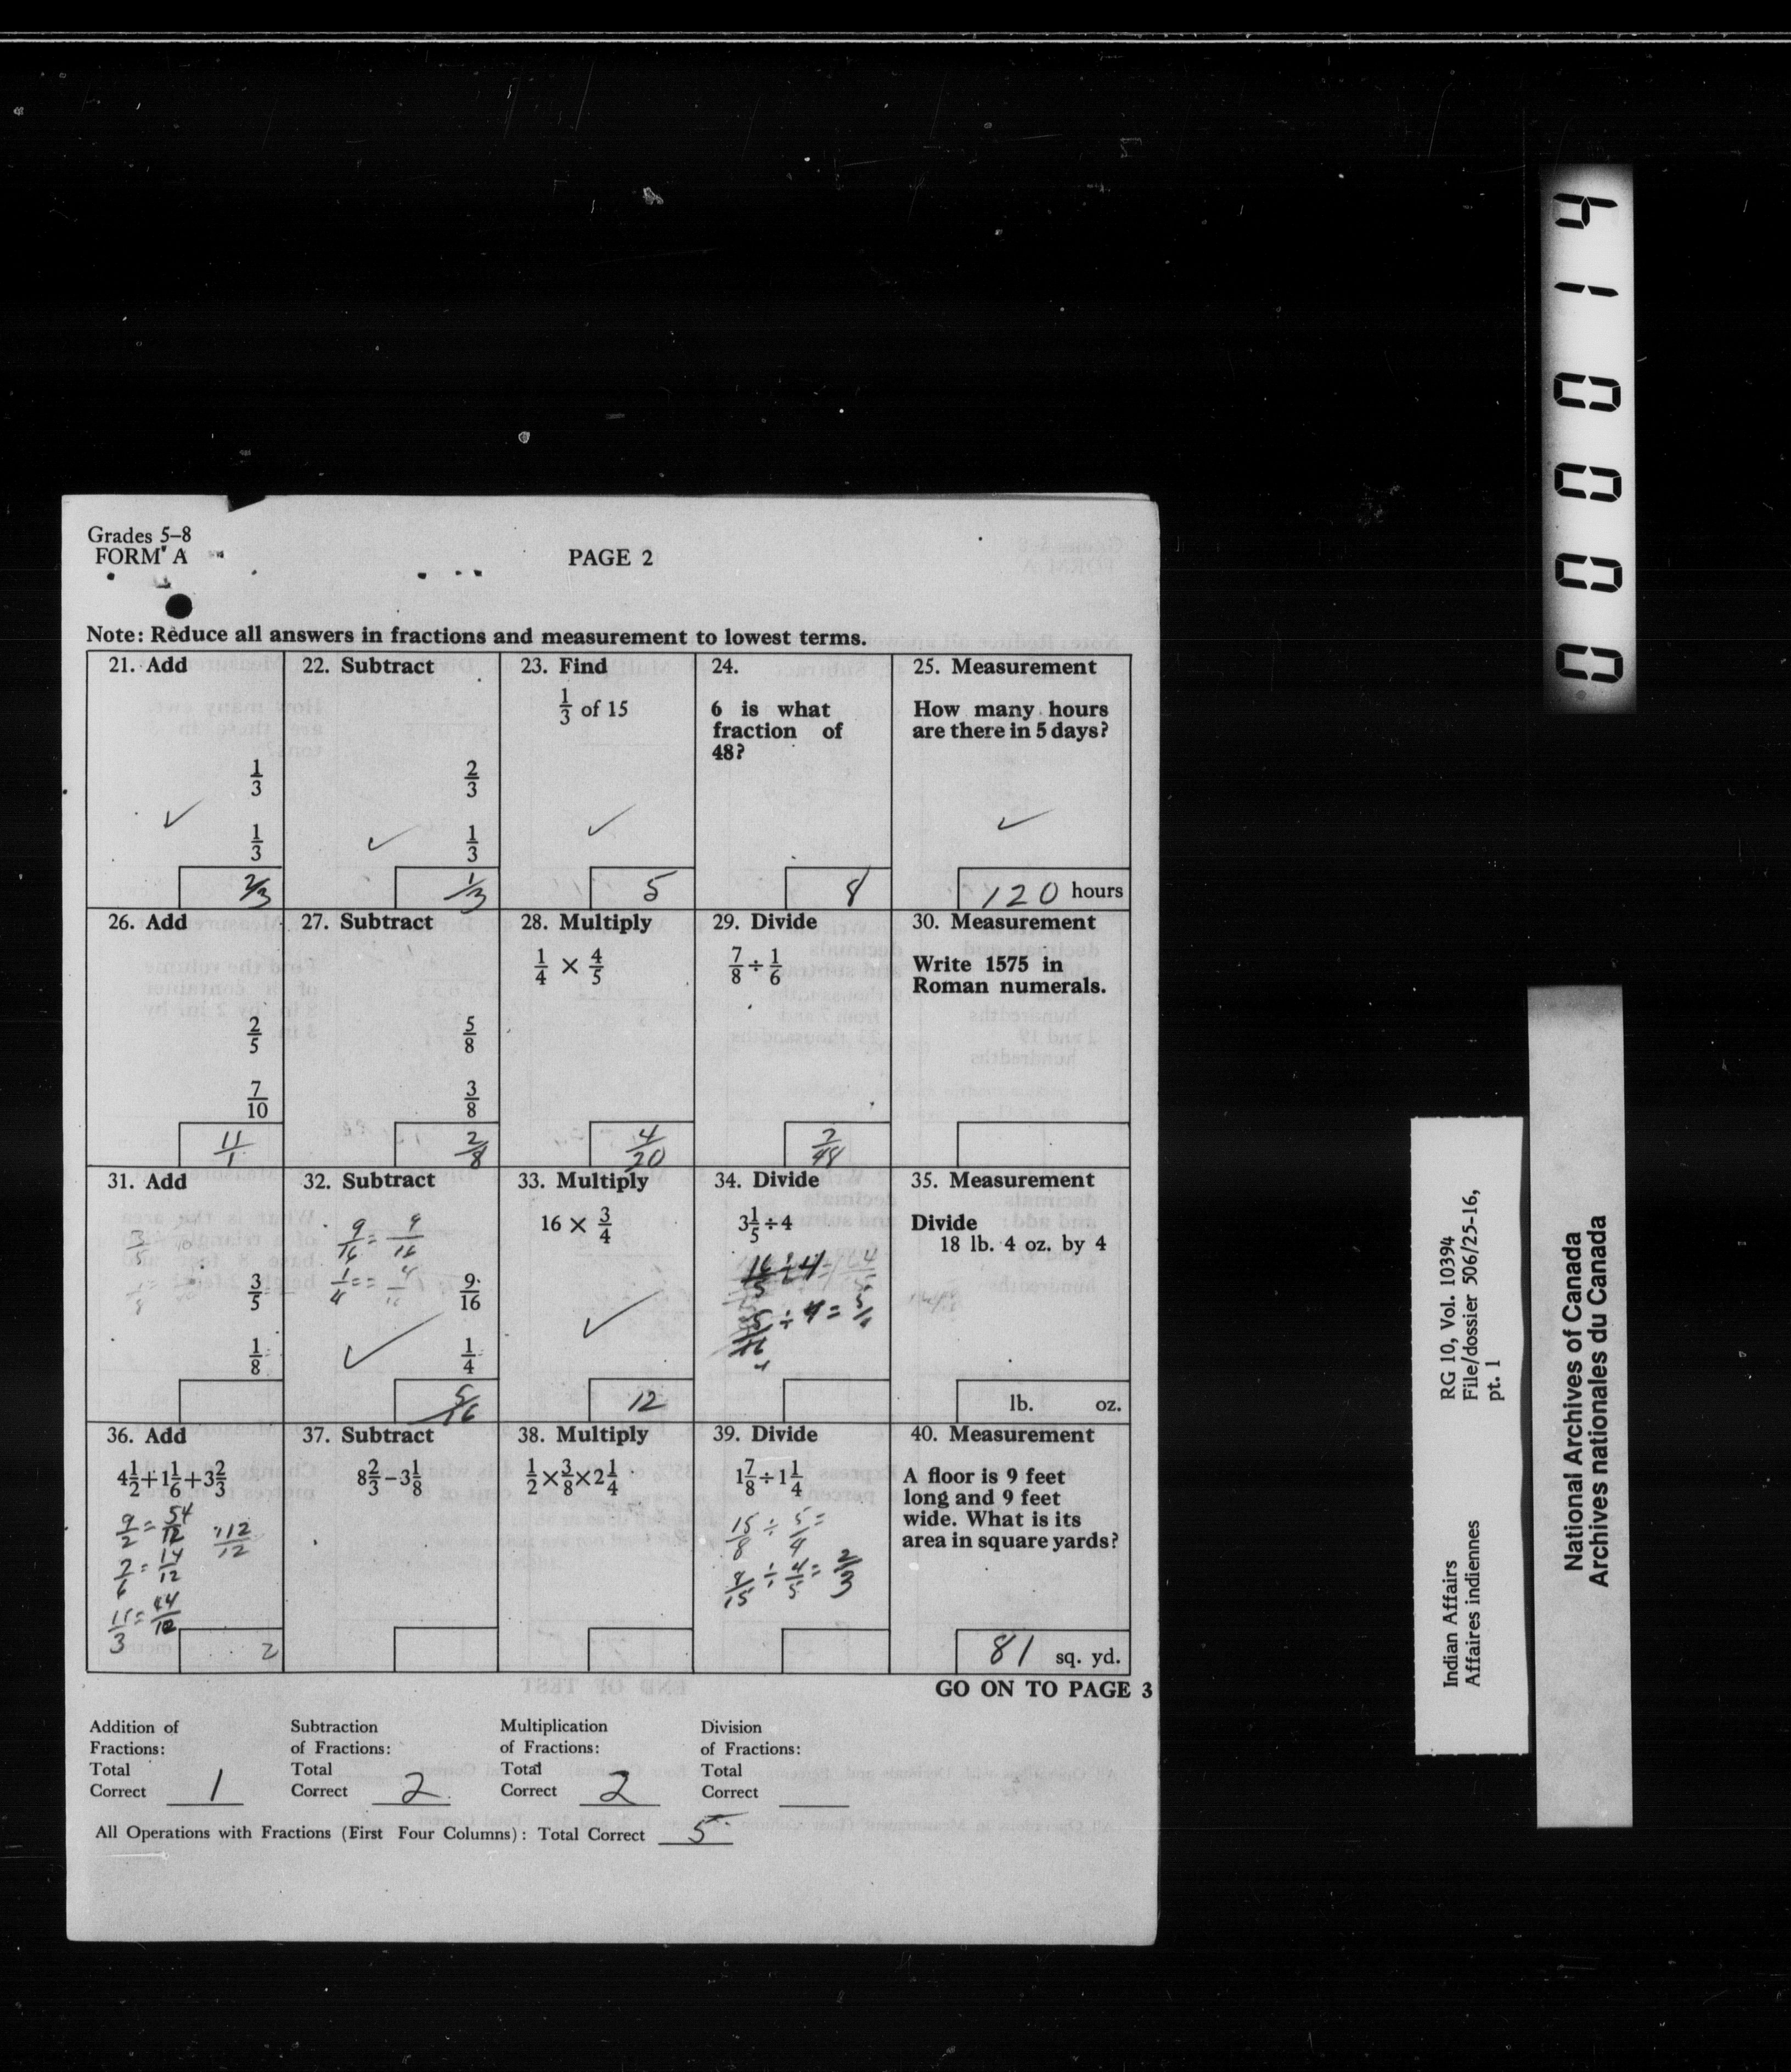 Grades 5–8
FORM A
PAGE 2
Note: Reduce all answers in fractions and measurement to lowest terms.
21. Add
1/3
1/3
2/3
22. Subtract
2/3
1/3
1/3
23. Find
1/3 of 15
5
24.
6 is what
fraction of
48?
8
25. Measurement
How many hours
are there in 5 days?
120 hours
26. Add
2/5
7/10
11/1
27. Subtract
5/8
3/8
2/8
28. Multiply
1/4 × 4/5
4/20
29. Divide
7/8 ÷ 1/6
2/48
30. Measurement
Write 1575 in
Roman numerals.
31. Add
3/5
1/8
3/5
1/8
32. Subtract
9/16 = 9/16
1/4 = = 4/16
9/16
1/4
5/16
33. Multiply
16 × 3/4
12
34. Divide
3 1/5 ÷ 4
16/5 ÷ 4
5/16 ÷ 4 =
35. Measurement
Divide
18 lb. 4 oz. by 4
lb. oz.
36. Add
4 1/2 + 1 1/6 + 3 2/3
9/2 = 54/12 112/12
7/6 = 14/12
11/3 = 44/12
2
37. Subtract
8 2/3 − 3 1/8
38. Multiply
1/2 × 3/8 × 2 1/4
39. Divide
1 7/8 ÷ 1 1/4
15/8 ÷ 5/4 =
8/15 ÷ 4/5 = 2/3
40. Measurement
A floor is 9 feet
long and 9 feet
wide. What is its
area in square yards?
81 sq. yd.
GO ON TO PAGE 3
Addition of
Fractions:
Total
Correct 1
Subtraction
of Fractions:
Total
Correct 2
Multiplication
of Fractions:
Total
Correct 2
Division
of Fractions:
Total
Correct
All Operations with Fractions (First Four Columns): Total Correct 5
000014
Indian Affairs RG 10, Vol. 10394
Affaires indiennes File/dossier 506/25-16,
pt. 1
National Archives of Canada
Archives nationales du Canada